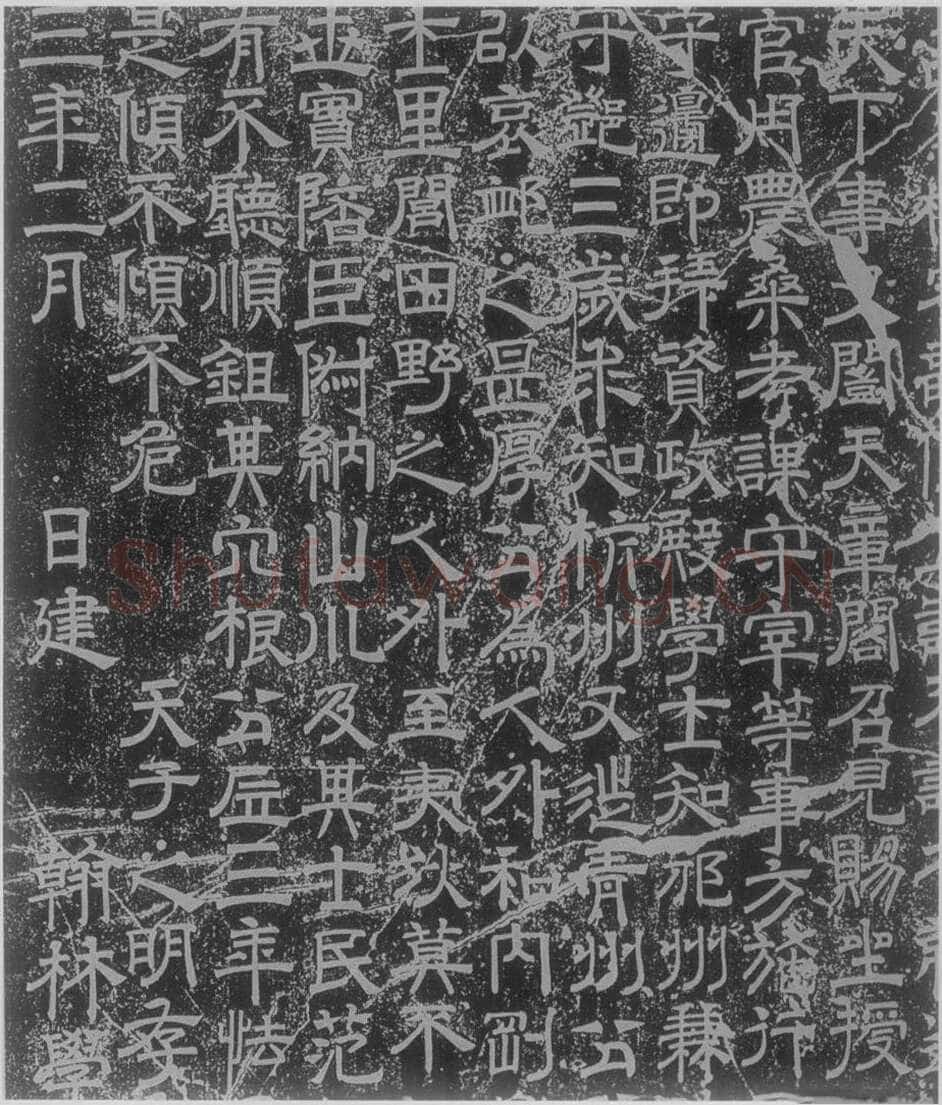 天下事又開天章閣召見賜坐授
官用農桑考課守宰等事方施行
守邊即拜資政殿學士知邠州兼
守鄧三歲求知杭州又徙青州公
以哀卹之厚公為人外和內剛
士里閭田野之人外至夷狄莫不
世實陪臣俶納山川及其士民范
有不聽順鉏其穴根公居三年怯
是傾不傾不危 天子之明存
三年二月 日建 翰林學
Shufawang.CN